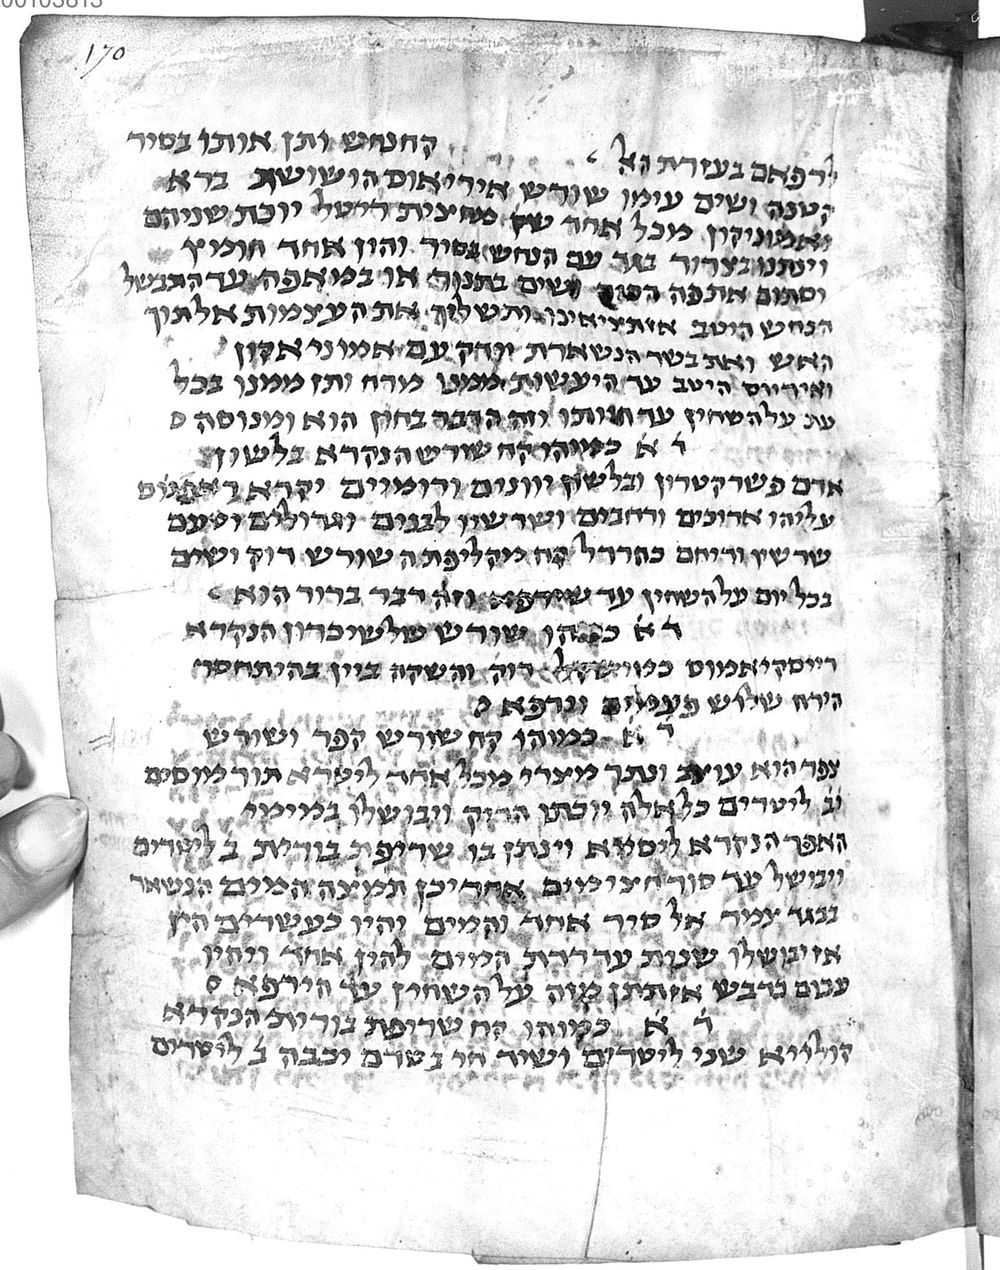 00103813
170
לרפאם בעזרת האל קח נחש ותן אותו בסיר
קטנה ושים עימו שורש איריאוס הושושן ברא
ואמוניקון מכל אחד מחצית ליטל יוכת שניהם
וינתנו בצרור בגד עם הנחש בסיר והין אחד חומיץ
וסתום את פה הסיר ושים בתנור או במאפה עד התבשל
הנחש היטב אז תציאינו ותשליך את העצמות אל תוך
האש ואת בשר הנשארת יוחק עם אמוניאקון
ואיריוס היטב עד היעשות ממנו מרח ותן ממנו בכל
עת על השחין עד חיותו וזה הדבר בחון הוא ומנוסה
ד׳ א׳ כמוהו קח שורש הנקרא בלשון
אדם פשר קטרון ובלשון יוונים ורומיים יקרא
עליהו ארוכים ורחבים ושרשיו לבנים וגדולים וטעם
שרשיו וריחם כחרדל קח מקליפת השורש דוק ושים
בכל יום על השחין עד שירפא וזה דבר ברור הוא
ד׳ א׳ כמוהו שורש של שיכרון הנקרא
רייסקיאמוס כמו דוק והשקה ביין בהיתחסר
הירח שלוש פעמים ונרפא
ד׳ א׳ כמוהו קח שורש הפר ושורש
צפר הוא ונתך מצרי מכל אחד ליטרא תור מוסים
וב׳ ליטרים כל אלה יוכתו הרוק ויבושלו במימי
האפר הנקרא ליסטא וינתן בו שריפת בורית ב׳ ליטרים
ויבושל עד סור חצי מים אחרי כן תמצה המים הנשאר
בבגד צמר אל סיר אחד והמים יהיו כעשרים הין
אז יבושלו שנית עד רדת המים להין אחד ויהיו
עבים כדבש אז תתן מזה על השחין עד הירפא
ד׳ א׳ כמוהו קח שריפת בורית הנקרא
קולויא שני ליטרים ושיד חי בטרם יכבה ב׳ ליטרים